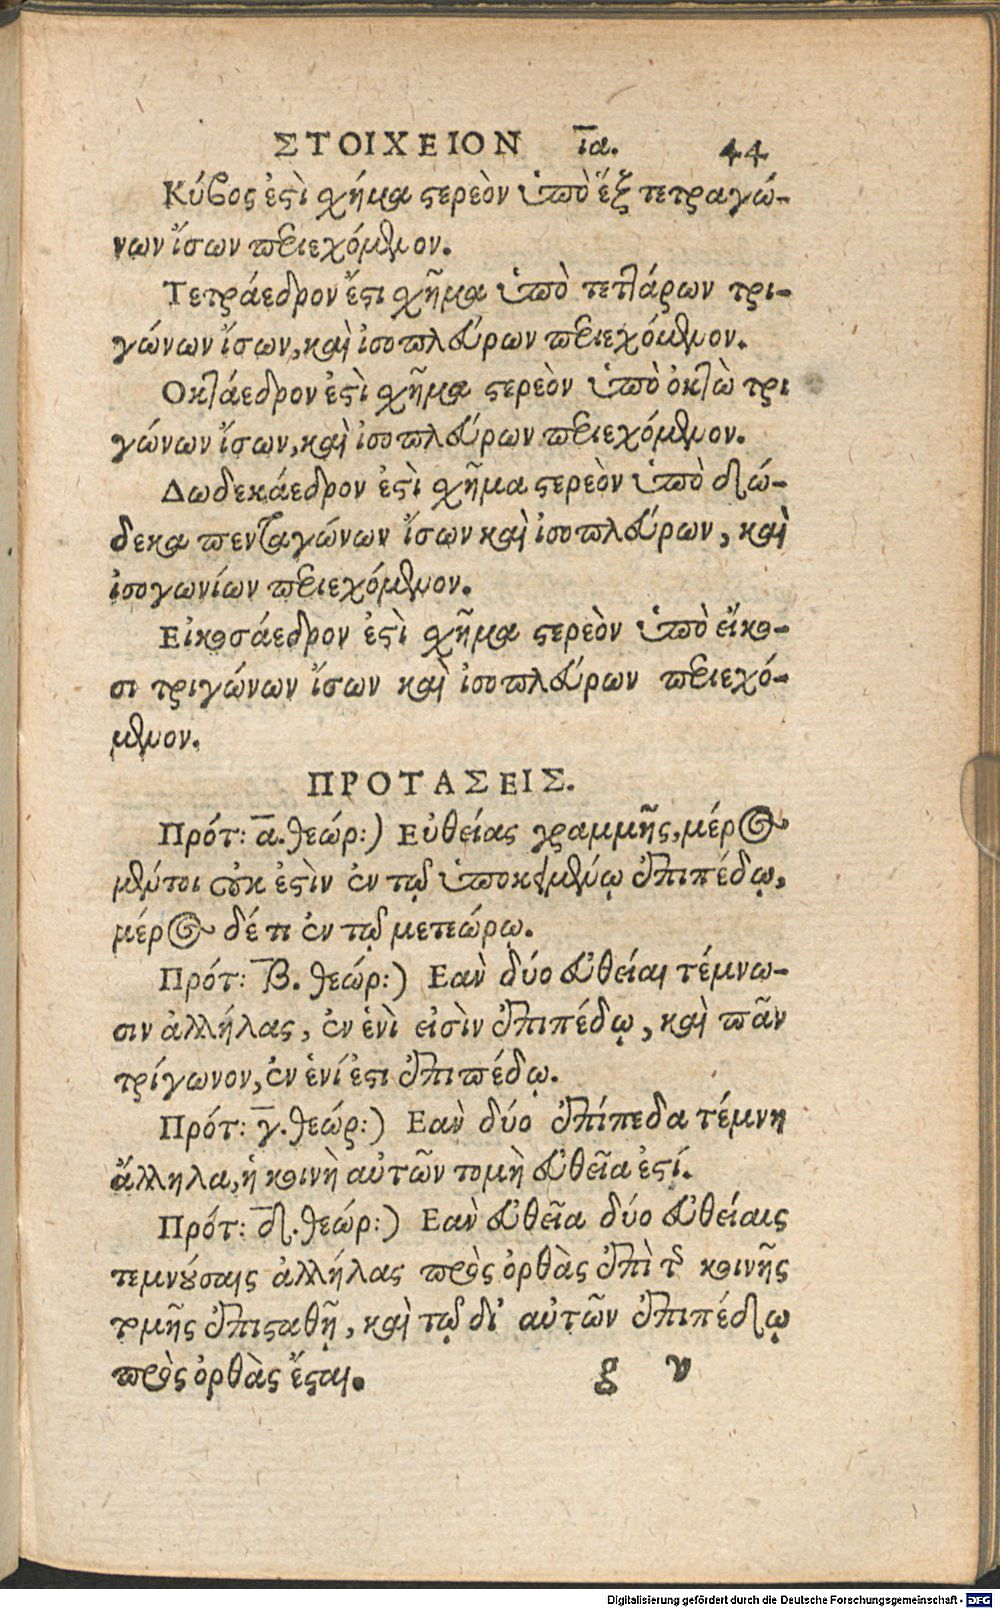 ΣΤΟΙΧΕΙΟΝ ια. 44
Κύβος ἐστὶ χῆμα στερεὸν ὑπὸ ἓξ τετραγώ-
νων ἴσων περιεχόμενον.
Τετράεδρον ἔστι χῆμα ὑπὸ τεττάρων τρι-
γώνων ἴσων, καὶ ἰσοπλεύρων περιεχόμενον.
Οκτάεδρον ἐστὶ χῆμα στερεὸν ὑπὸ ὀκτὼ τρι
γώνων ἴσων, καὶ ἰσοπλεύρων περιεχόμενον.
Δωδεκάεδρον ἐστὶ χῆμα στερεὸν ὑπὸ δώ-
δεκα πενταγώνων ἴσων καὶ ἰσοπλεύρων, καὶ
ἰσογωνίων περιεχόμενον.
Εἰκοσάεδρον ἐστὶ χῆμα στερεὸν ὑπὸ εἴκο-
σι τριγώνων ἴσων καὶ ἰσοπλεύρων περιεχό-
μενον.
ΠΡΟΤΑΣΕΙΣ.
Πρότ: α. θεώρ:) Εὐθείας γραμμῆς, μέρος
μέντοι οὐκ ἐστὶν ἐν τῷ ὑποκειμένῳ ἐπιπέδῳ,
μέρος δέ τι ἐν τῷ μετεώρῳ.
Πρότ: β. θεώρ:) Εαν δύο εὐθείαι τέμνω-
σιν ἀλλήλας, ἐν ἑνὶ εἰσὶν ἐπιπέδῳ, καὶ πᾶν
τρίγωνον, ἐν ἑνί ἐστι ἐπιπέδῳ.
Πρότ: γ. θεώρ:) Εαν δύο ἐπίπεδα τέμνη
ἄλληλα, ἡ κοινὴ αὐτῶν τομὴ εὐθεῖα ἐστί.
Πρότ: δ. θεώρ:) Εαν εὐθεῖα δύο εὐθείαις
τεμνούσαις ἀλλήλας πρὸς ὀρθὰς ἐπὶ τῆς κοινῆς
τομῆς ἐπισταθῇ, καὶ τῷ δι' αὐτῶν ἐπιπέδῳ
πρὸς ὀρθὰς ἔσται.
g v
Digitalisierung gefördert durch die Deutsche Forschungsgemeinschaft - DFG